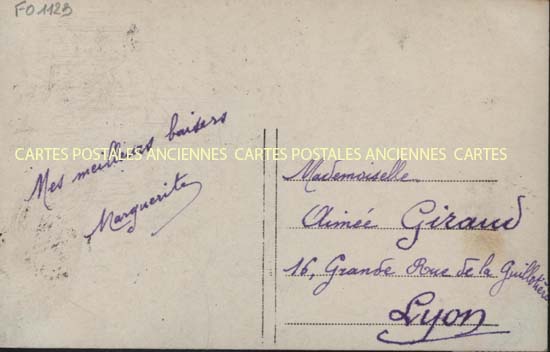 FO1123
Mes meilleurs baisers
Marguerite
CARTES POSTALES ANCIENNES CARTES POSTALES ANCIENNES CARTES
Mademoiselle
Aimée Giraud
16, Grande Rue de la Guillotière
Lyon